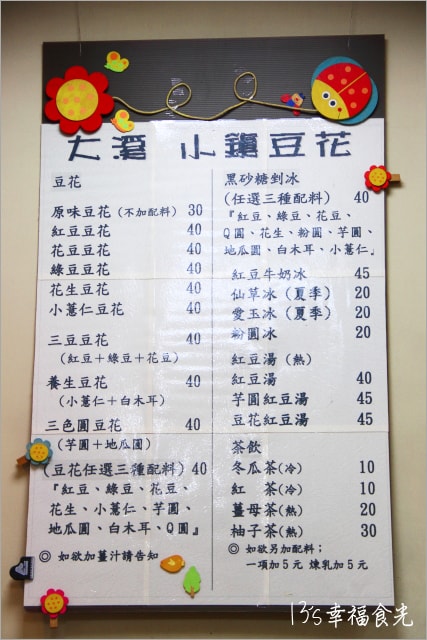 大溪 小鎮豆花
豆花
原味豆花(不加配料) 30
紅豆豆花 40
花豆豆花 40
綠豆豆花 40
花生豆花 40
小薏仁豆花 40
三豆豆花 40
(紅豆+綠豆+花豆)
養生豆花 40
(小薏仁+白木耳)
三色圓豆花 40
(芋圓+地瓜圓)
(豆花任選三種配料) 40
『紅豆、綠豆、花豆、
花生、小薏仁、芋圓、
地瓜圓、白木耳、Q圓』
◎ 如欲加薑汁請告知
黑砂糖剉冰
(任選三種配料) 40
『紅豆、綠豆、花豆、
Q圓、花生、粉圓、芋圓、
地瓜圓、白木耳、小薏仁』
紅豆牛奶冰 45
仙草冰(夏季) 20
愛玉冰(夏季) 20
粉圓冰 20
紅豆湯(熱)
紅豆湯 40
芋圓紅豆湯 45
豆花紅豆湯 45
茶飲
冬瓜茶(冷) 10
紅 茶(冷) 10
薑母茶(熱) 20
柚子茶(熱) 30
◎ 如欲另加配料;
一項加5元 煉乳加5元
13's幸福食光